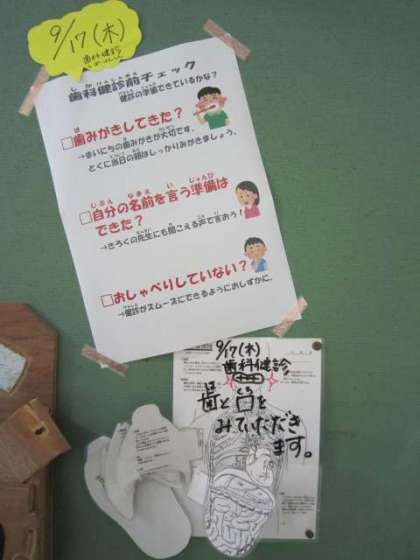 9/17(木)
歯科健診
歯科健診前チェック
健診の準備できているかな?
□歯みがきしてきた?
→まいにちの歯みがきが大切です。
とくに当日の朝はしっかりみがきましょう。
□自分の名前を言う準備は
できた?
→きろくの先生にも聞こえる声で言おう!
□おしゃべりしていない?
→健診がスムーズにできるようにおしずかに。
9/17(木)
歯科健診
歯と口を
みていただき
ます。